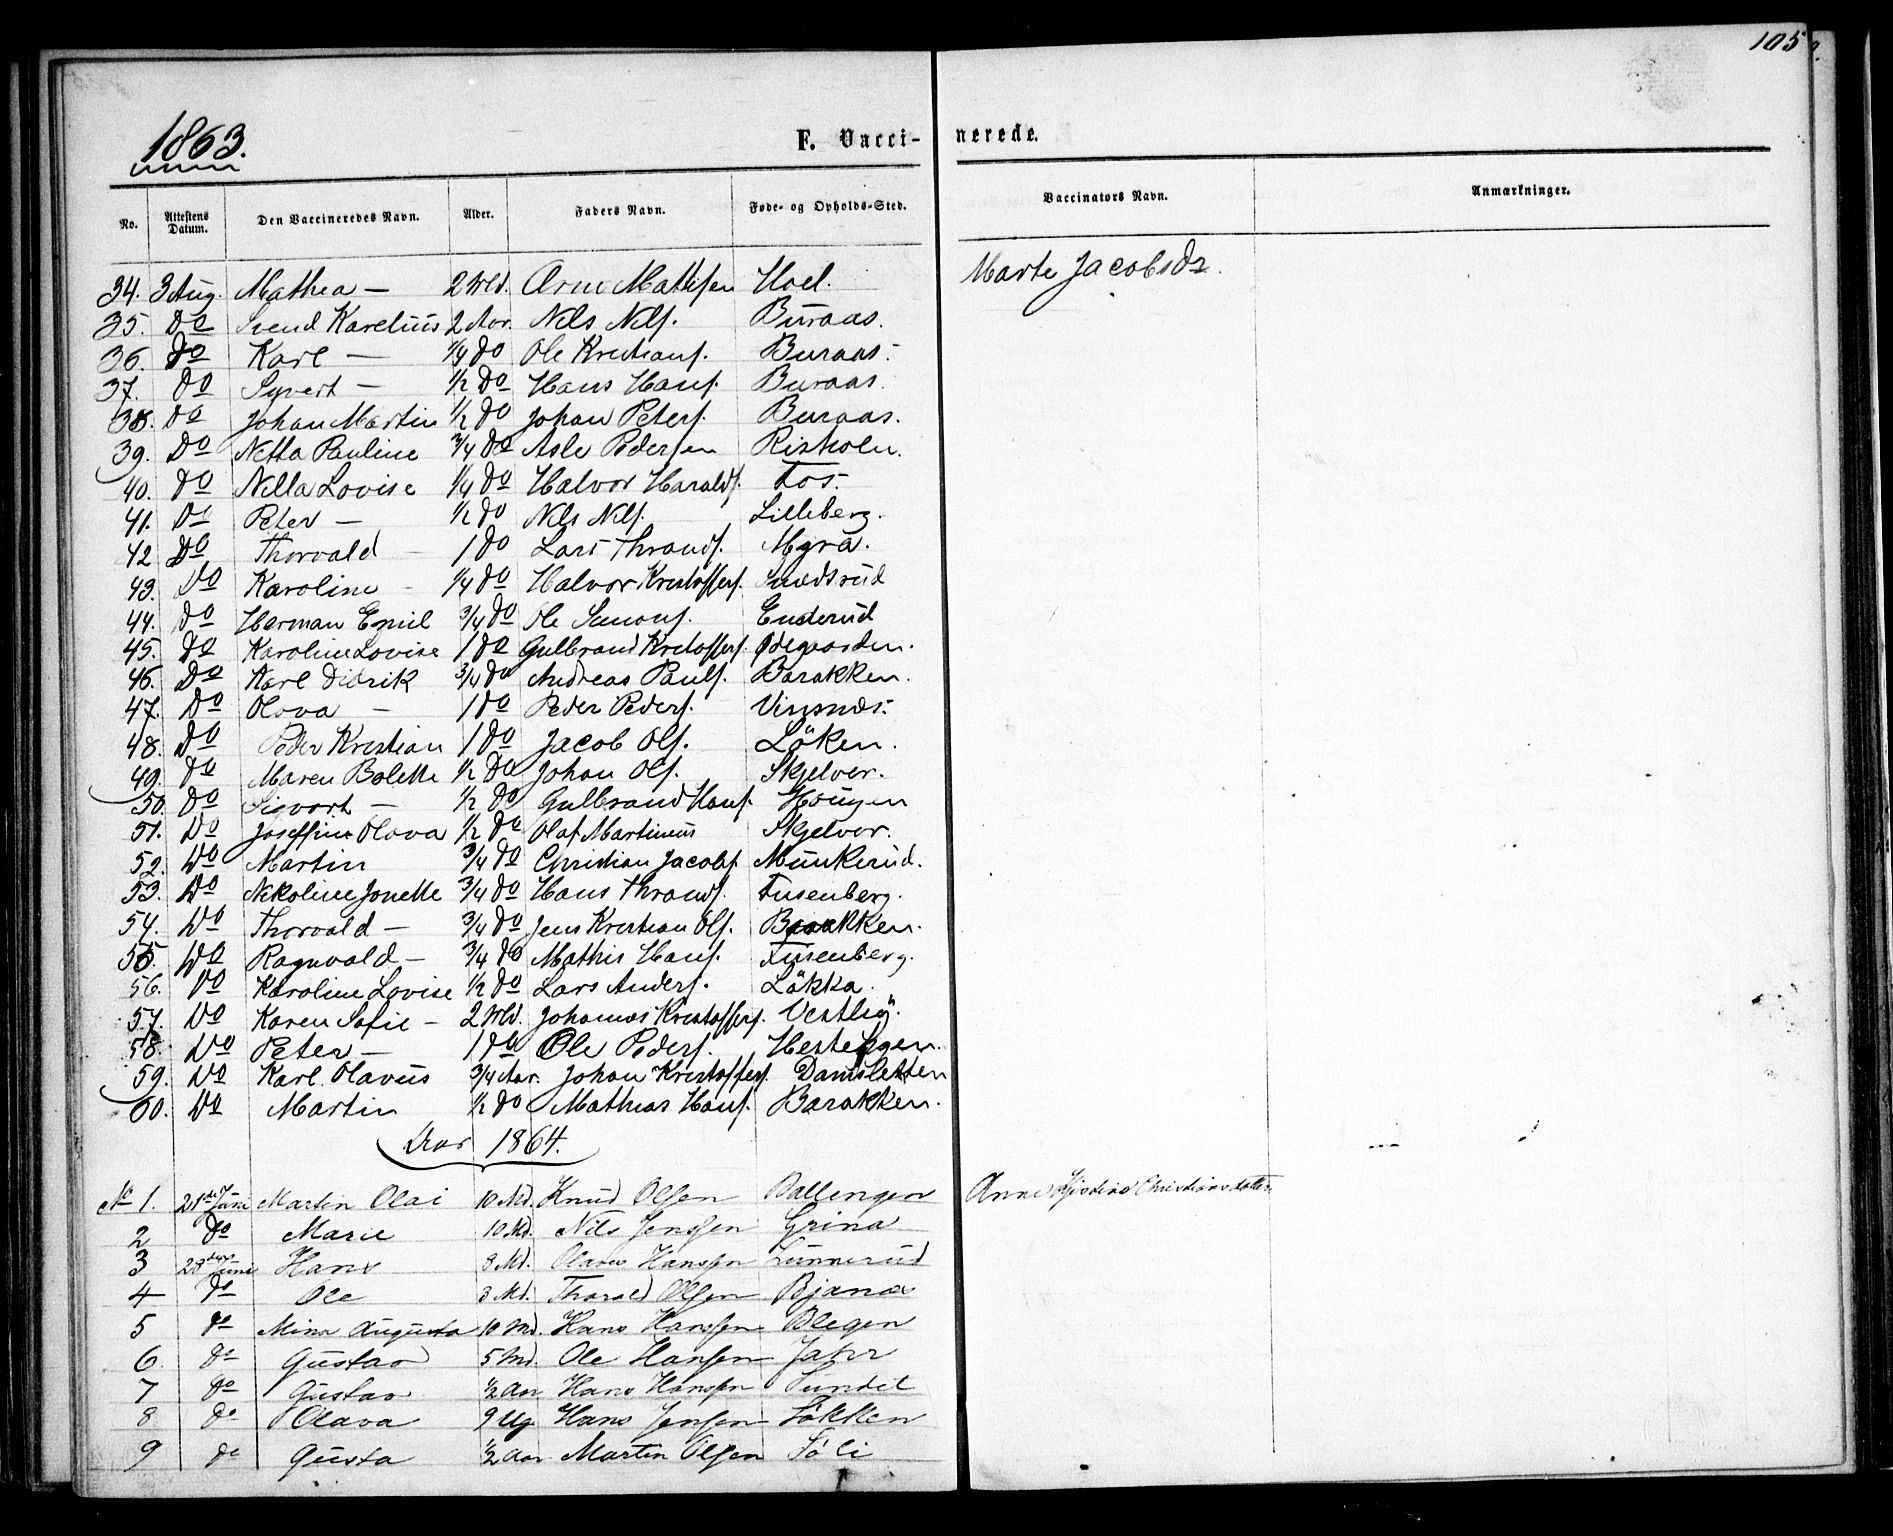 105
1863.
F. Vaccinerede.
No. Attestens Datum. Den Vaccineredes Navn. Alder. Faders Navn. Føde- og Opholds-Sted. Vaccinators Navn. Anmærkninger.
34. 3 Aug. Mathea — 2 Md. Arne Mathisen Hoel. Marte Jacobsdr.
35. Do Svend Karelius 2 Aar. Nils Nils. Buraas.
36. Do Karl — 1/4 Do Ole Kristians. Buraas.
37. Do Syvert — 1/2 Do Hans Hans. Buraas.
38. Do Johan Martin 1/2 Do Johan Peters. Buraas.
39. Do Netta Pauline 3/4 Do Asle Pedersen Risholn.
40. Do Nella Lovise 1/4 Do Halvor Haralds. Fos.
41. Do Peter — 1/2 Do Nils Nils. Lilleberg.
42 Do Thorvald — 1 Do Lars Thrands. Myra.
43. Do Karoline — 1/4 Do Halvor Kristoffers.
44. Do Herman Emil 3/4 Do Ole Simons. Enderud
45. Do Karoline Lovise 1 Do Gulbrand Kristoffers. Ødegaarden.
46. Do Karl Didrik 3/4 Do Andreas Pauls. Barakken.
47. Do Olava — 1 Do Peder Peders. Vinsnæs.
48. Do Peder Kristian 1 Do Jacob Ols. Löken.
49. Do Maren Bolette 1/2 Do Johan Ols. Skjelver.
50. Do Sigvart — 1/2 Do Gulbrand Hans. Hougen
51. Do Joseffine Olava 1/2 Do Olaf Martinius Skjelver.
52. Do Martin 3/4 Do Christian Jacobs. Munkerud.
53. Do Nikoline Jonette 3/4 Do Hans Thrands. Fusenberg.
54. Do Thorvald — 3/4 Do Jens Kristian Ols. Barakken.
55. Do Ragnvald — 3/4 Do Mathis Hans. Fusenberg.
56. Do Karoline Lovise 1/2 Do Lars Anders. Lökka.
57. Do Karen Sofie — 2 Md. Johannes Kristoffers. Vestby.
58. Do Peter — 1 Do Ole Peders. Hestehgen.
59. Do Karl Olavus 3/4 Aar. Johan Kristoffers. Damsletten
60. Do Martin 1/2 Do Mathias Hans. Barakken.
Aar 1864.
No 1. 21de Juni Martin Olai 10 Md. Knud Olsen Ballengen Anne Kjistine Christiansdatter
2 Do Marie 10 Md. Nils Jenssen Grina
3 28de Juni Hans 8 Md. Olaves Hanssen Lunnerud
4 Do Ole 3 Md. Thorald Olsen
5 do Mina Augusta 10 Md. Hans Hanssen Blegen
6. do Gustav 5 Md. Ole Hansen
7 do Gustav 1/2 Aar Hans Hanssen Sundet
8 do Olava 9 Ug Hans Jensen Løkken
9 do Gusta 1/2 Aar Martin Olsen